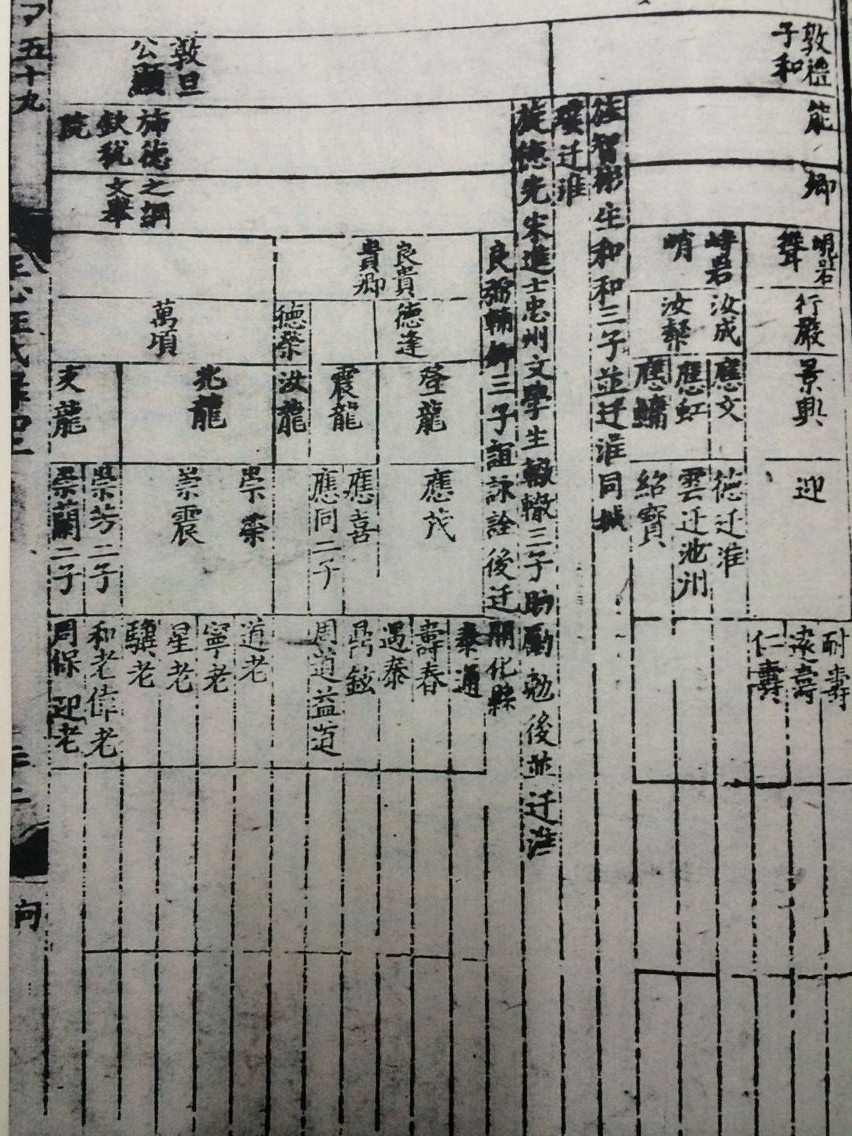 敦禮
子和
能
卿
峴岩
聳
行嚴
景興
迎
耐壽
遠壽
仁壽
峙岩
峭
汝成
汝檠
應文
應虹
應鱅
德迁淮
雲迁池州
紹寶
智彬生和和三子並迁淮同
迁淮
旋德先宋進士忠州文學生轍轍三子助勵勉後並迁淮
良弼輔卿三子誼詠詮後迁開化縣
敦旦
公顯
旆德之綱
欽猷文舉
良貴
貴卿
德逢
登龍
震龍
應茂
應喜
應同二子
泰通
壽春
遇泰
鼎鉉
周道益道
德榮
汝龍
萬頃
兆龍
崇榮
崇震
道老
寧老
星老
驥老
崇芳二子
和老偉老
崇蘭二子
周保迎老
五十九